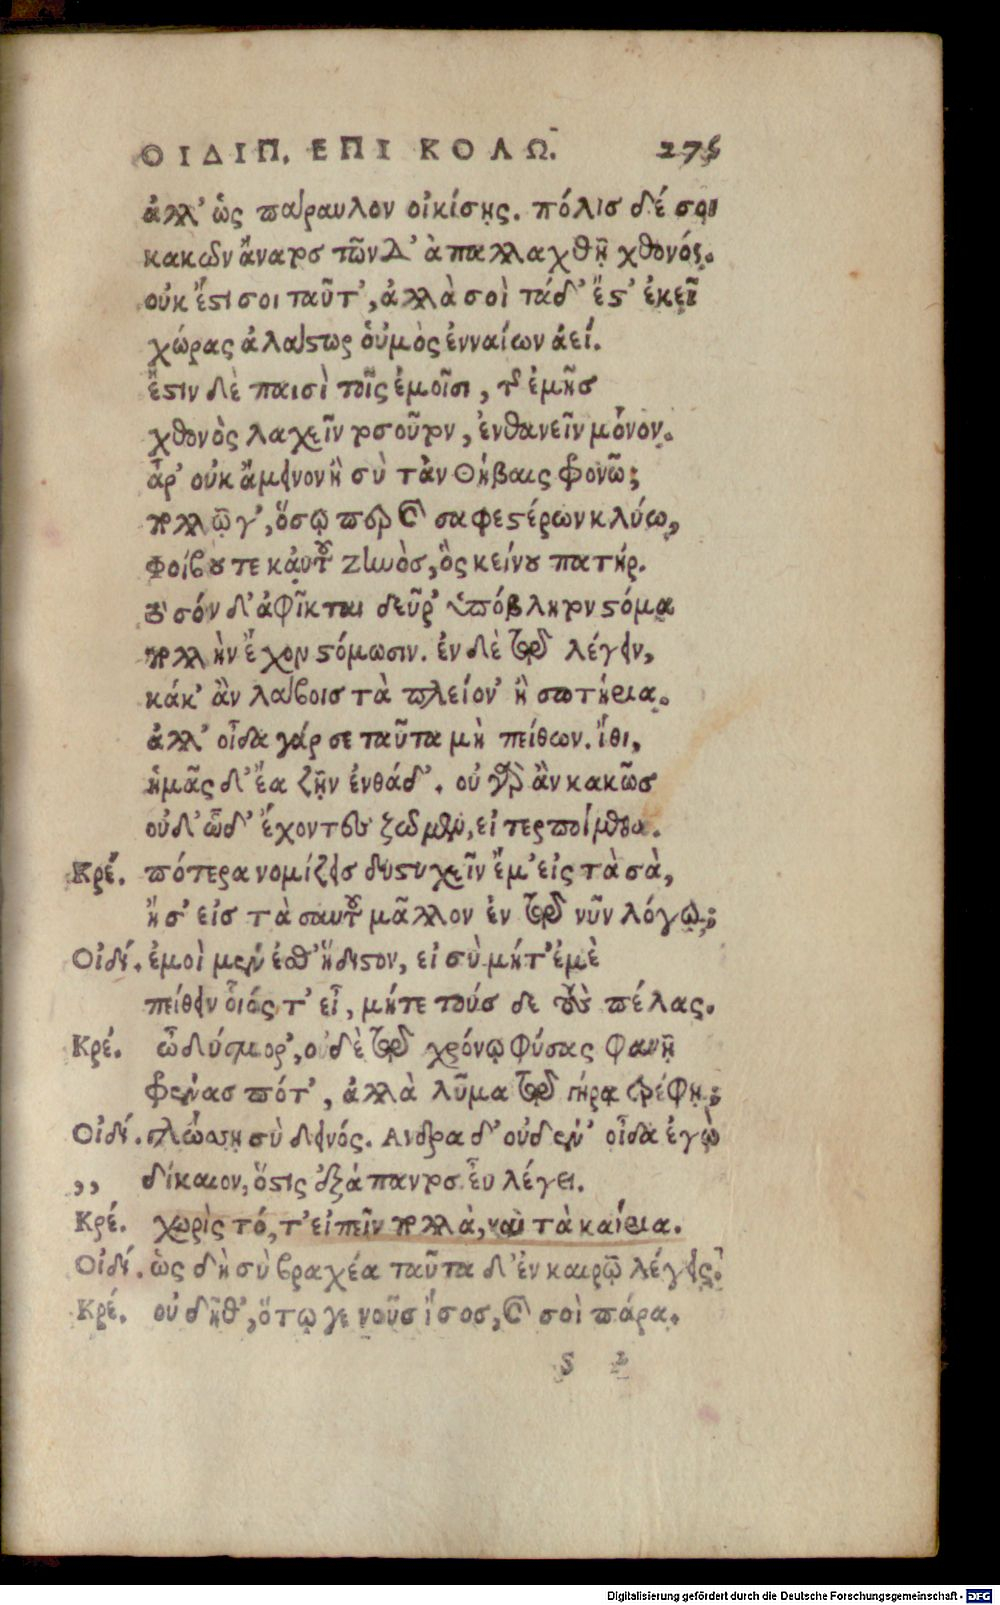 ΟΙΔΙΠ. ΕΠΙ ΚΟΛΩ. 275
ἀλλ' ὡς πάραυλον οἰκίσῃς. πόλισ δέ σοι
κακῶν ἄνατοσ τῶνδ' ἀπαλλαχθῇ χθονός.
οὐκ ἔστι σοι ταῦτ', ἀλλὰ σοὶ τάδ' ἔστ' ἐκεῖ
χώρας ἀλάστωρ οὑμὸς ἐνναίων ἀεί.
ἔστιν δὲ παισὶ τοῖς ἐμοῖσι, τῆς ἐμῆσ
χθονὸς λαχεῖν τοσοῦτον, ἐνθανεῖν μόνον.
ἆρ' οὐκ ἄμεινον ἢ σὺ τὰν Θήβαις φρονῶ;
πολλῷ γ', ὅσῳ περ καὶ σαφεστέρων κλύω,
Φοίβου τε καὐτοῦ Ζηνὸσ, ὃς κείνου πατήρ.
τὸ σόν δ' ἀφῖκται δεῦρ' ὑπόβλητον στόμα
πολλὴν ἔχον στόμωσιν. ἐν δὲ τῷ λέγειν,
κάκ' ἂν λάβοισ τὰ πλείον' ἢ σωτήρια.
ἀλλ' οἶδα γάρ σε ταῦτα μὴ πείθων. ἴθι,
ἡμᾶς δ' ἔα ζῇν ἐνθάδ'. οὐ γὰρ ἂν κακῶσ
οὐδ' ὧδ' ἔχοντες ζῶμεν, εἰ τερποίμεθα.
Κρέ. πότερα νομίζεισ δυστυχεῖν ἔμ' εἰς τὰ σὰ,
ἢ σ' εἰσ τὰ σαυτοῦ μᾶλλον ἐν τῷ νῦν λόγῳ;
Οἰδί. ἐμοὶ μέν ἐσθ' ἥδιστον, εἰ σὺ μήτ' ἐμὲ
πείθειν οἷός τ' εἶ, μήτε τούσ δε τοὺς πέλας.
Κρέ. ὦ δύσμορ', οὐδὲ τῷ χρόνῳ φύσας φανῇ
φρένασ πότ', ἀλλὰ λῦμα τῷ γήρᾳ τρέφῃ;
Οἰδί. γλώσσῃ σὺ δεινός. Ανδρα δ' οὐδέν' οἶδα ἐγὼ
,, δίκαιον, ὅστις ἐξάπαντοσ εὖ λέγει.
Κρέ. χωρὶς τό, τ' εἰπεῖν πολλὰ, καὶ τὰ καίρια.
Οἰδί. ὡς δὴ σὺ βραχέα ταῦτα δ' ἐν καιρῷ λέγεις.
Κρέ. οὐ δῆθ', ὅτῳ γε νοῦσ ἴσοσ, καὶ σοὶ πάρα.
s 2
Digitalisierung gefördert durch die Deutsche Forschungsgemeinschaft - DFG